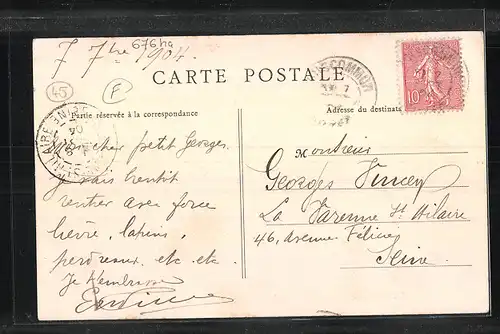 7 7bre 1904
676ha
CARTE POSTALE
45
F
Partie réservée à la correspondance
Adresse du destinat
10
Mon cher petit Georges
Je vais bientôt
rentrer avec force
lièvre, lapins,
perdreaux etc etc.
Je t'embrasse
Monsieur
Georges
La Varenne St Hilaire
46, Avenue Félicie
Seine